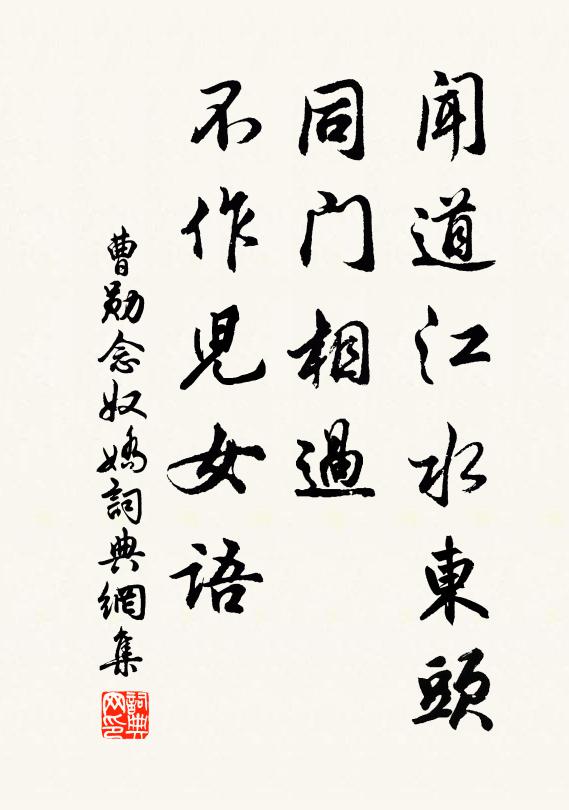 聞道江水東頭
同門相過
不作兒女語
曹勛念奴嬌詞典網集
詞典
网印